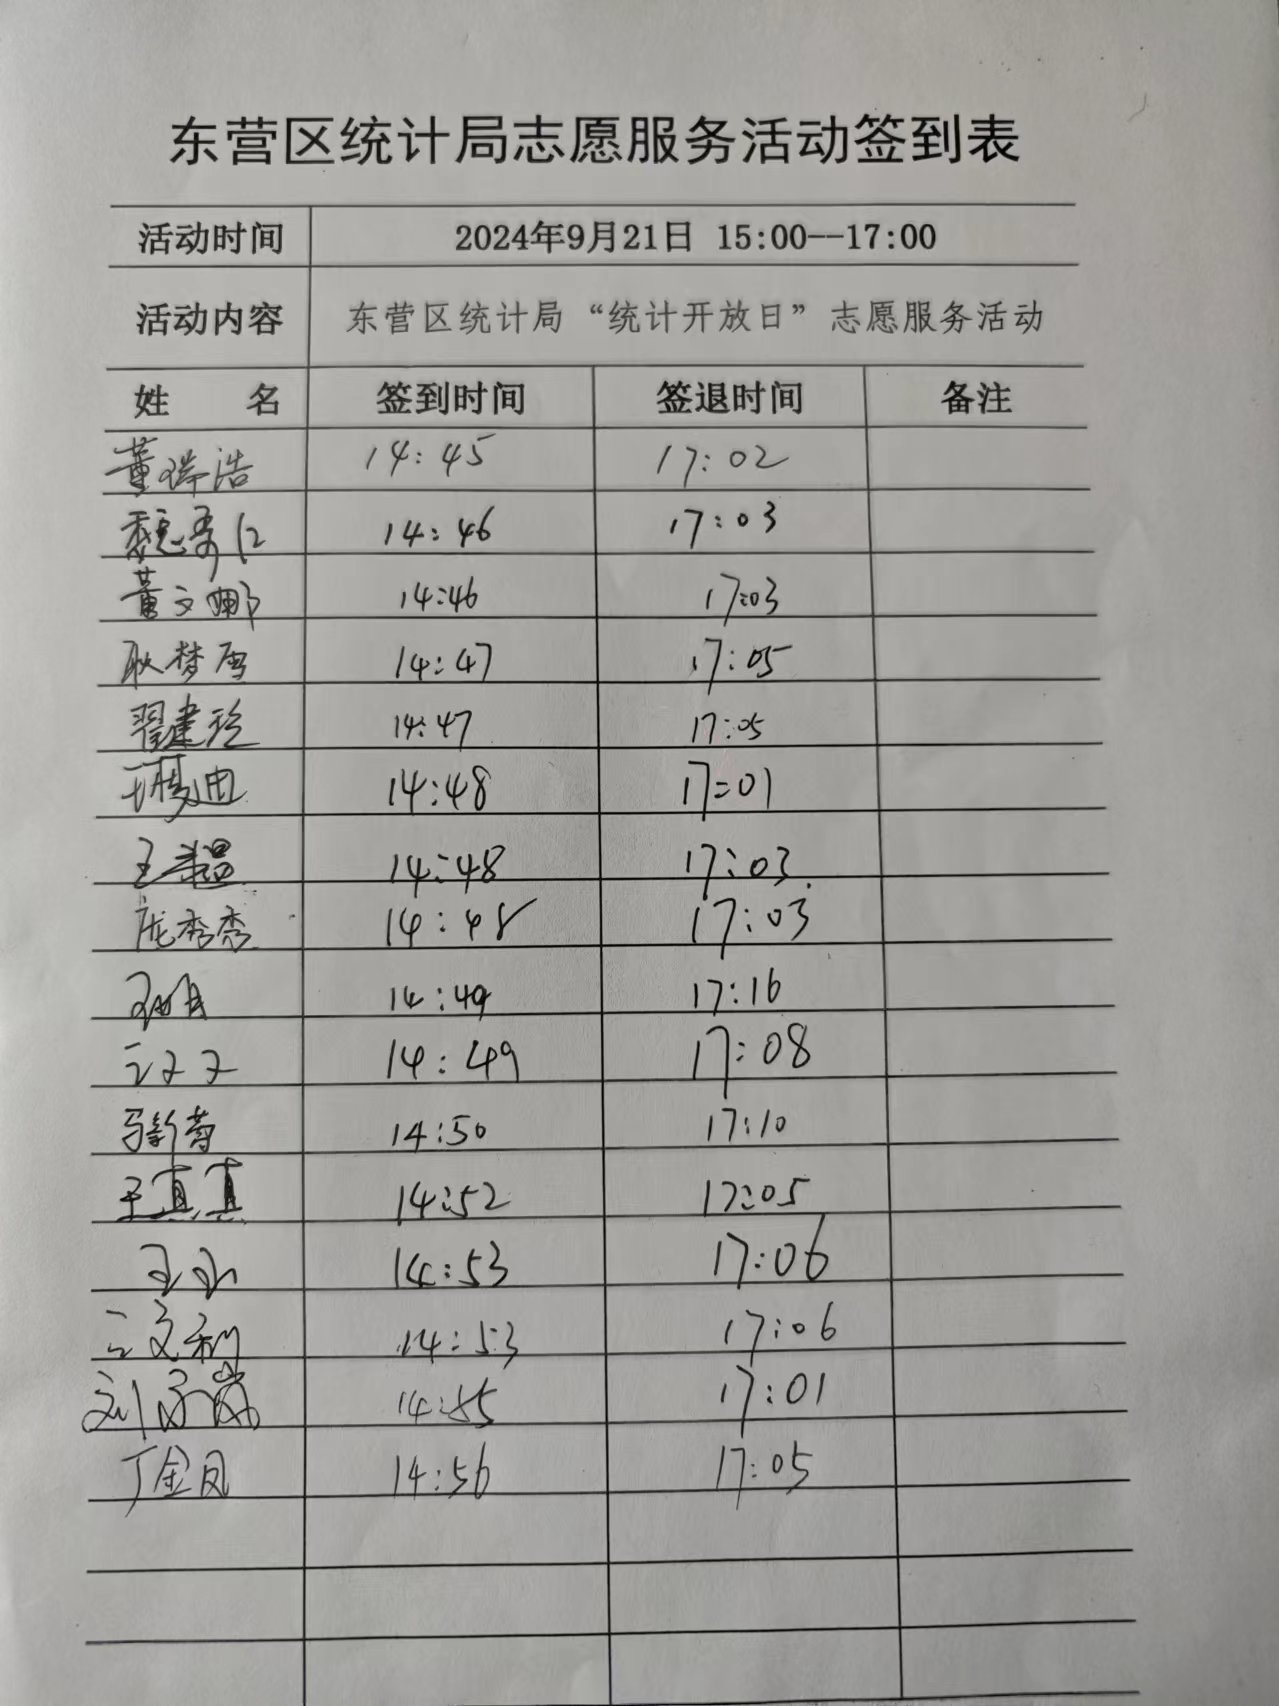 东营区统计局志愿服务活动签到表
活动时间 2024年9月21日 15:00--17:00
活动内容 东营区统计局“统计开放日”志愿服务活动
姓 名 签到时间 签退时间 备注
董瑞浩 14:45 17:02
14:46 17:03
董文娜 14:46 17:03
耿梦雪 14:47 17:05
翟建玲 14:47 17:05
14:48 17:01
王 14:48 17:03
庞秀秀 14:48 17:03
14:49 17:16
14:49 17:08
马新菊 14:50 17:10
王真真 14:52 17:05
14:53 17:06
14:53 17:06
刘 14:55 17:01
丁金凤 14:56 17:05